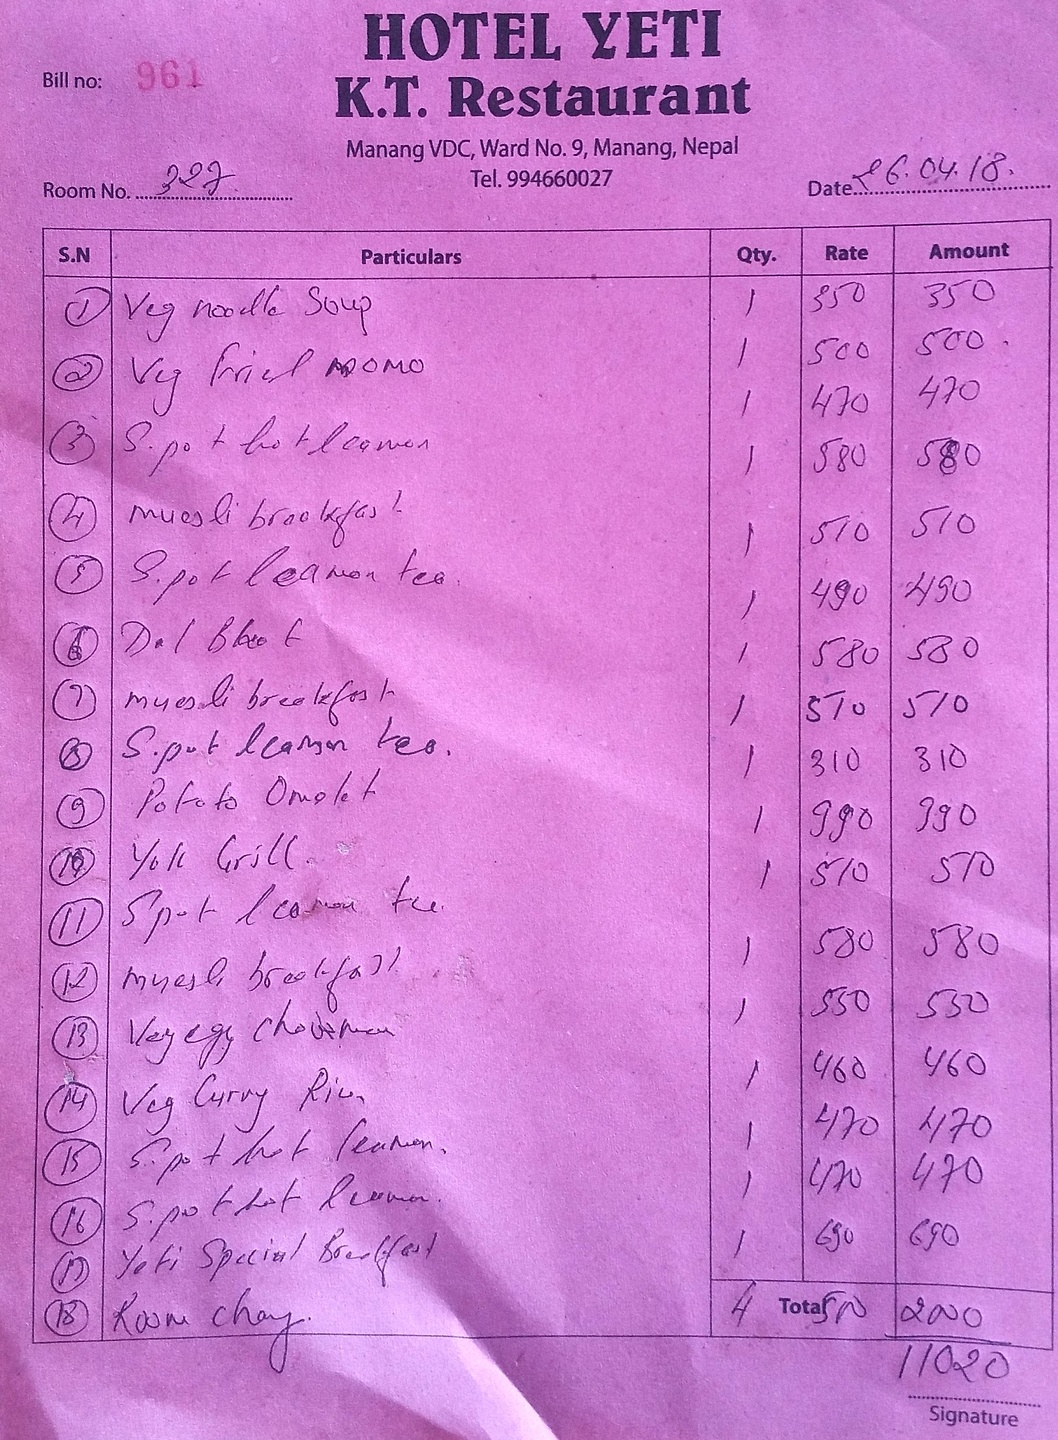 HOTEL YETI
Bill no: 961
K.T. Restaurant
Manang VDC, Ward No. 9, Manang, Nepal
Tel. 994660027
Room No. 327 Date 26.04.18.
S.N Particulars Qty. Rate Amount
1 Veg noodle Soup 1 350 350
2 Veg Fried MOMO 1 500 500
3 S.pot hot leamon 1 470 470
4 muesli breakfast 1 580 580
5 S.pot leamon tea. 1 510 510
6 Dal Bhat 1 490 490
7 muesli breakfast 1 580 580
8 S.pot leamon tea. 1 510 510
9 Potato Omelet 1 310 310
10 Yak Grill 1 990 990
11 S pot leamon tea 1 510 510
12 muesli breakfast 1 580 580
13 Veg egg Chowmen 1 550 550
14 Veg Curry Rice 1 460 460
15 S.pot hot leamon. 1 470 470
16 S.pot hot leamon. 1 470 470
17 Yeti Special Breakfast 1 690 690
18 Room charg. 4 Total 500 2000
11020
Signature